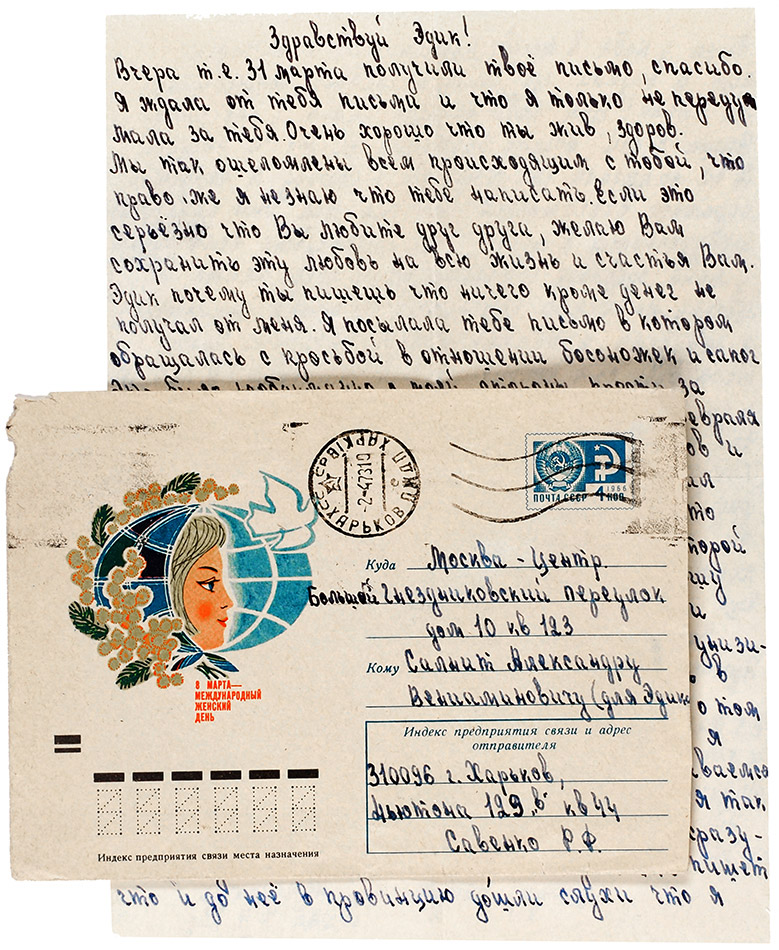 Здравствуй Эдик!
Вчера т.е. 31 марта получили твоё письмо, спасибо.
Я ждала от тебя письма и что я только не переду
мала за тебя. Очень хорошо что ты жив, здоров.
Мы так ошеломлены всем происходящим с тобой, что
право же я незнаю что тебе написать. Если это
серьёзно что Вы любите друг друга, желаю Вам
сохранить эту любовь на всю жизнь и счастья Вам.
Эдик почему ты пишешь что ничего кроме денег не
получал от меня. Я посылала тебе письмо в котором
обращалась с просьбой в отношении босоножек и сапог
за
евраля
ов и
ал
то
торой
шу
и
унизи-
в
о том
я
ваемся
я так
сразу-
пишет
что и до неё в провинцию дошли слухи что я
СССР ХАРЬКОВ ПДМО
ХАРКІВ
-2-4731 0
ПОЧТА СССР 4 КОП
1966
8 МАРТА—
МЕЖДУНАРОДНЫЙ
ЖЕНСКИЙ
ДЕНЬ
Куда Москва - Центр.
Большой Гнездниковский переулок
дом 10 кв 123
Кому Салнит Александру
Вениаминовичу (для Эдика
Индекс предприятия связи и адрес
отправителя
310096 г. Харьков,
Ньютона 129 „в" кв 44
Савенко Р.Ф.
Индекс предприятия связи места назначения